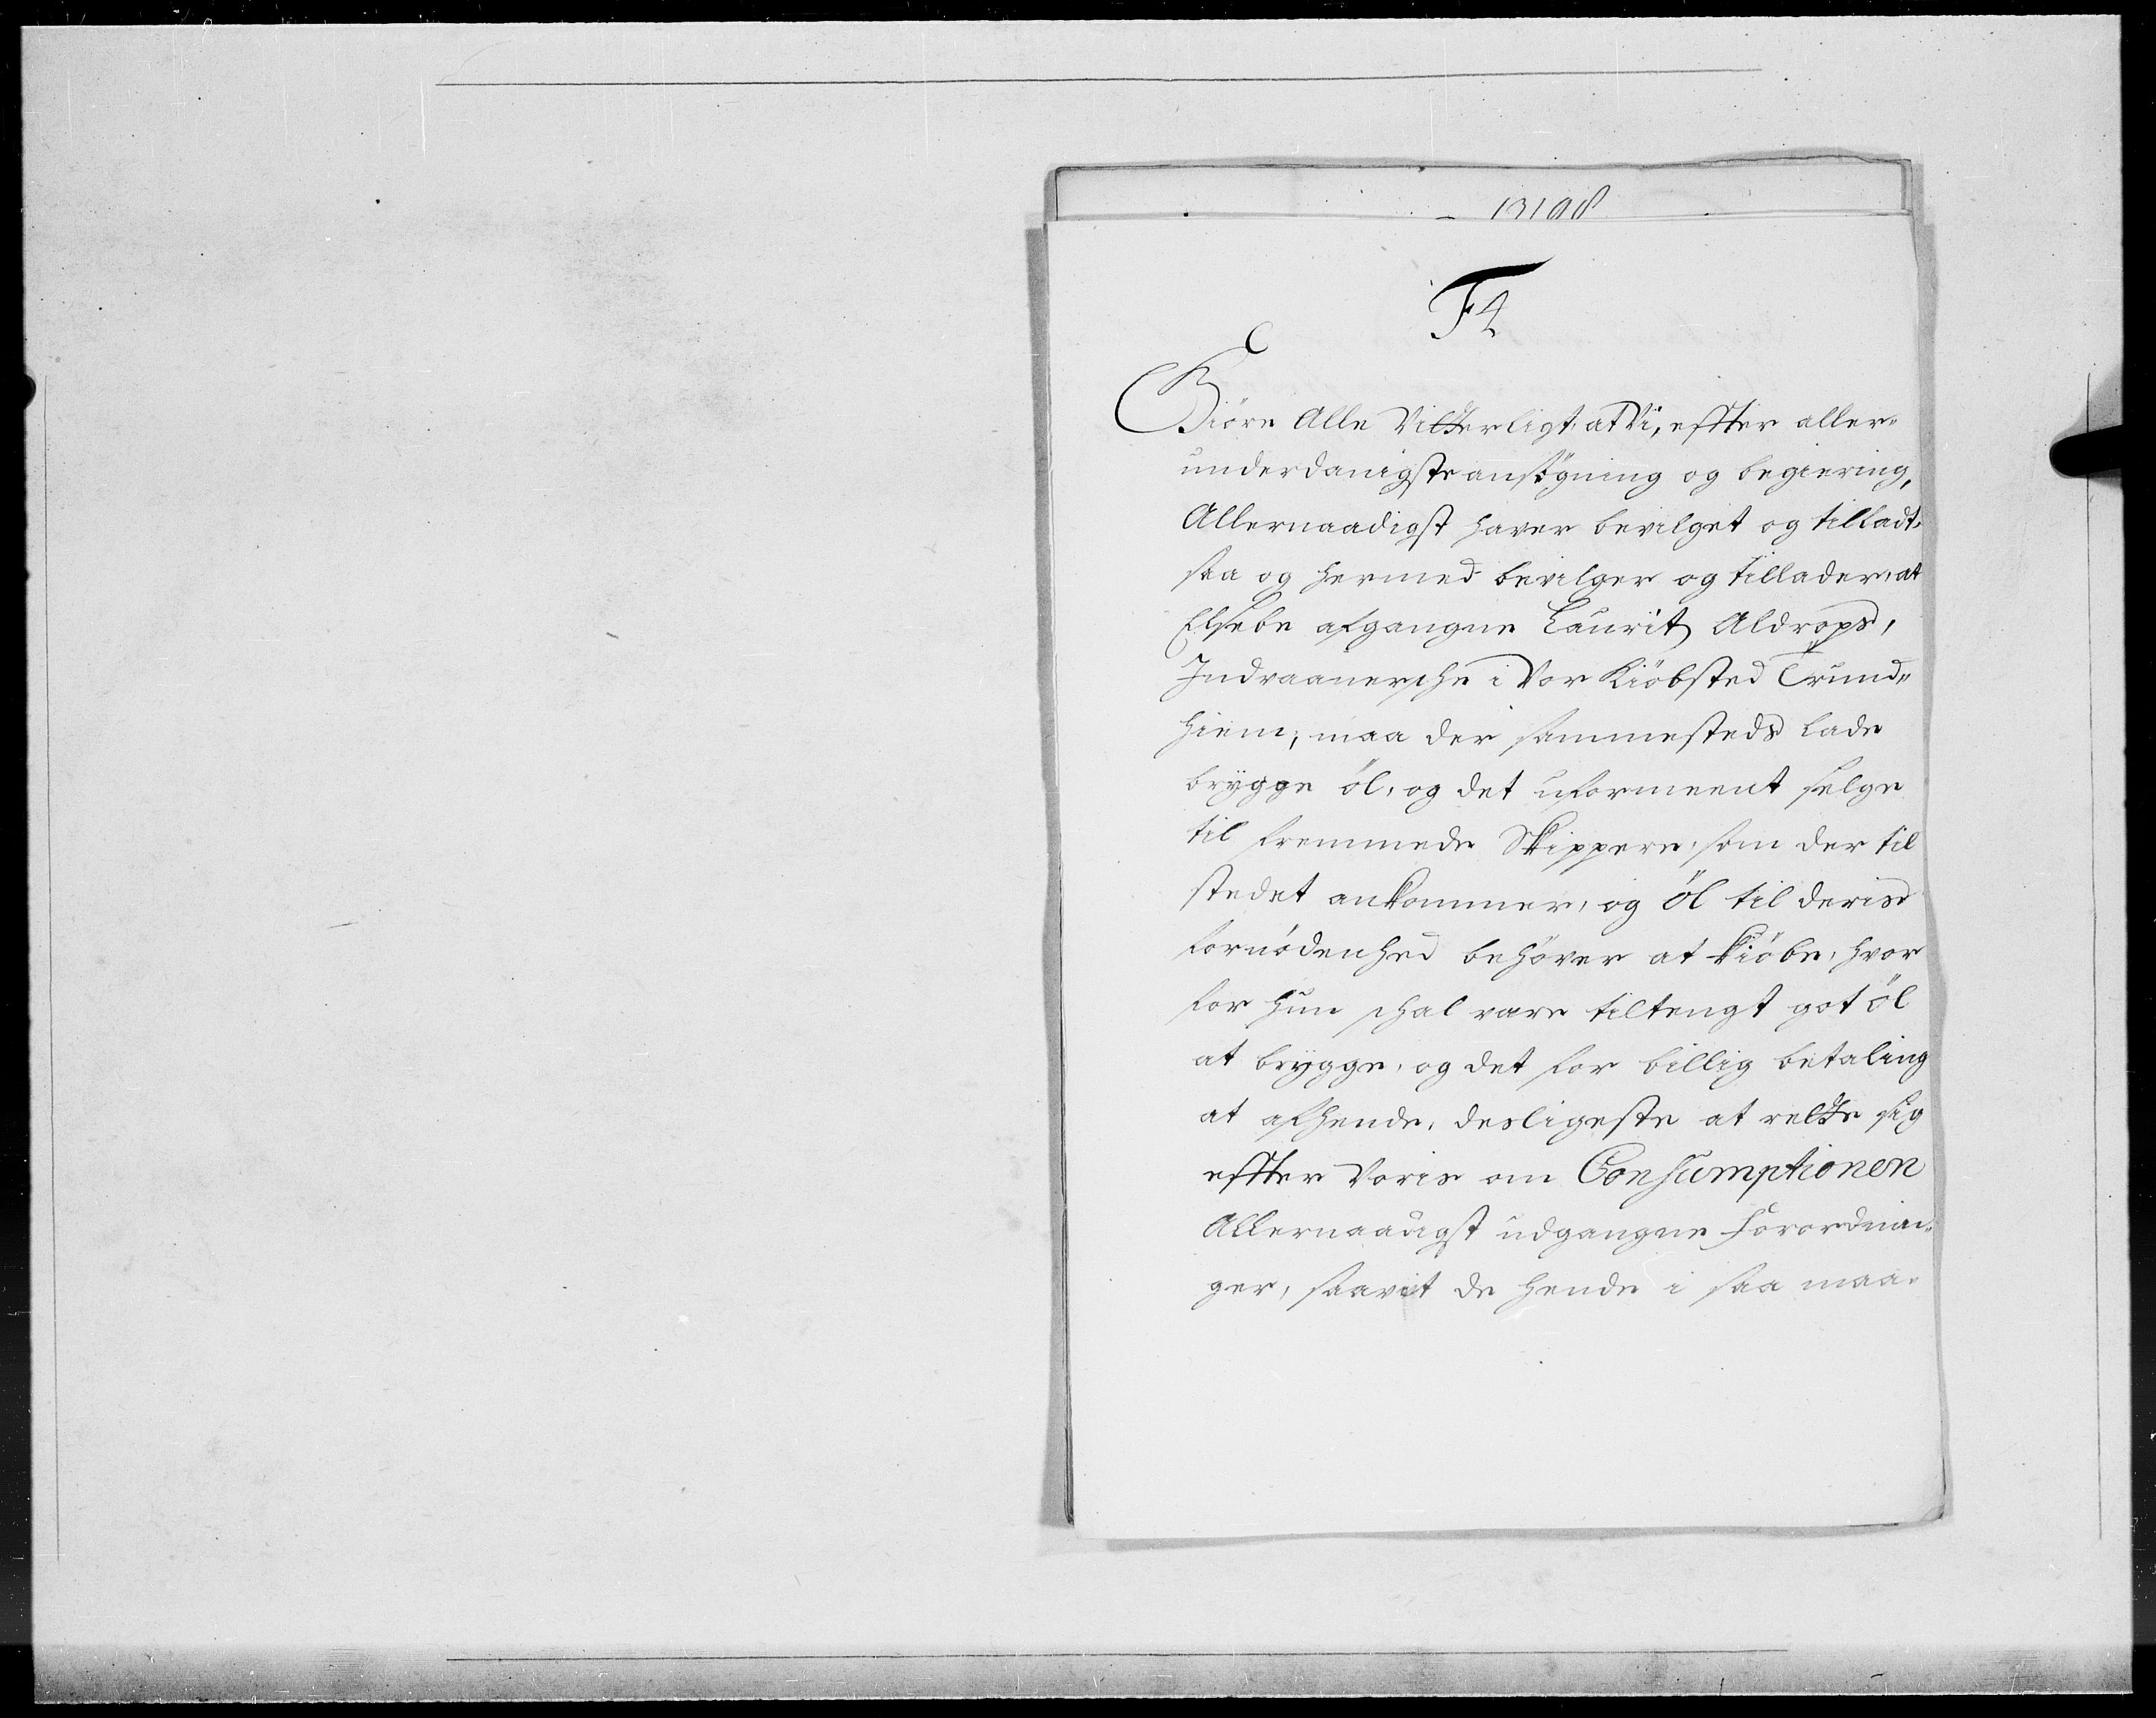 F4
Giöre Alle Vitterligt, at Vi, effter aller-
underdanigste ansögning og begiering,
Allernaadigst haver bevilget og tilladt,
saa og hermed bevilger og tillader, at
Elsebe afgangne Laurits Aldrops,
Indvaanersche i Vor Kiöbsted Trund-
hiem, maa der sammesteds lade
brygge öl, og det uformeent selge
til fremmede Skippere, som der til
stedet ankommer, og öl til deris
fornödenhed behöver at kiöbe, hvor
for hun schal være tiltengt got öl
at brygge, og det for billig betaling
at afhende, desligeste at rette sig
effter Voris om Consumptionen
Allernaadigst udgangne Forordnin-
ger, saavit de hende i saa maa-